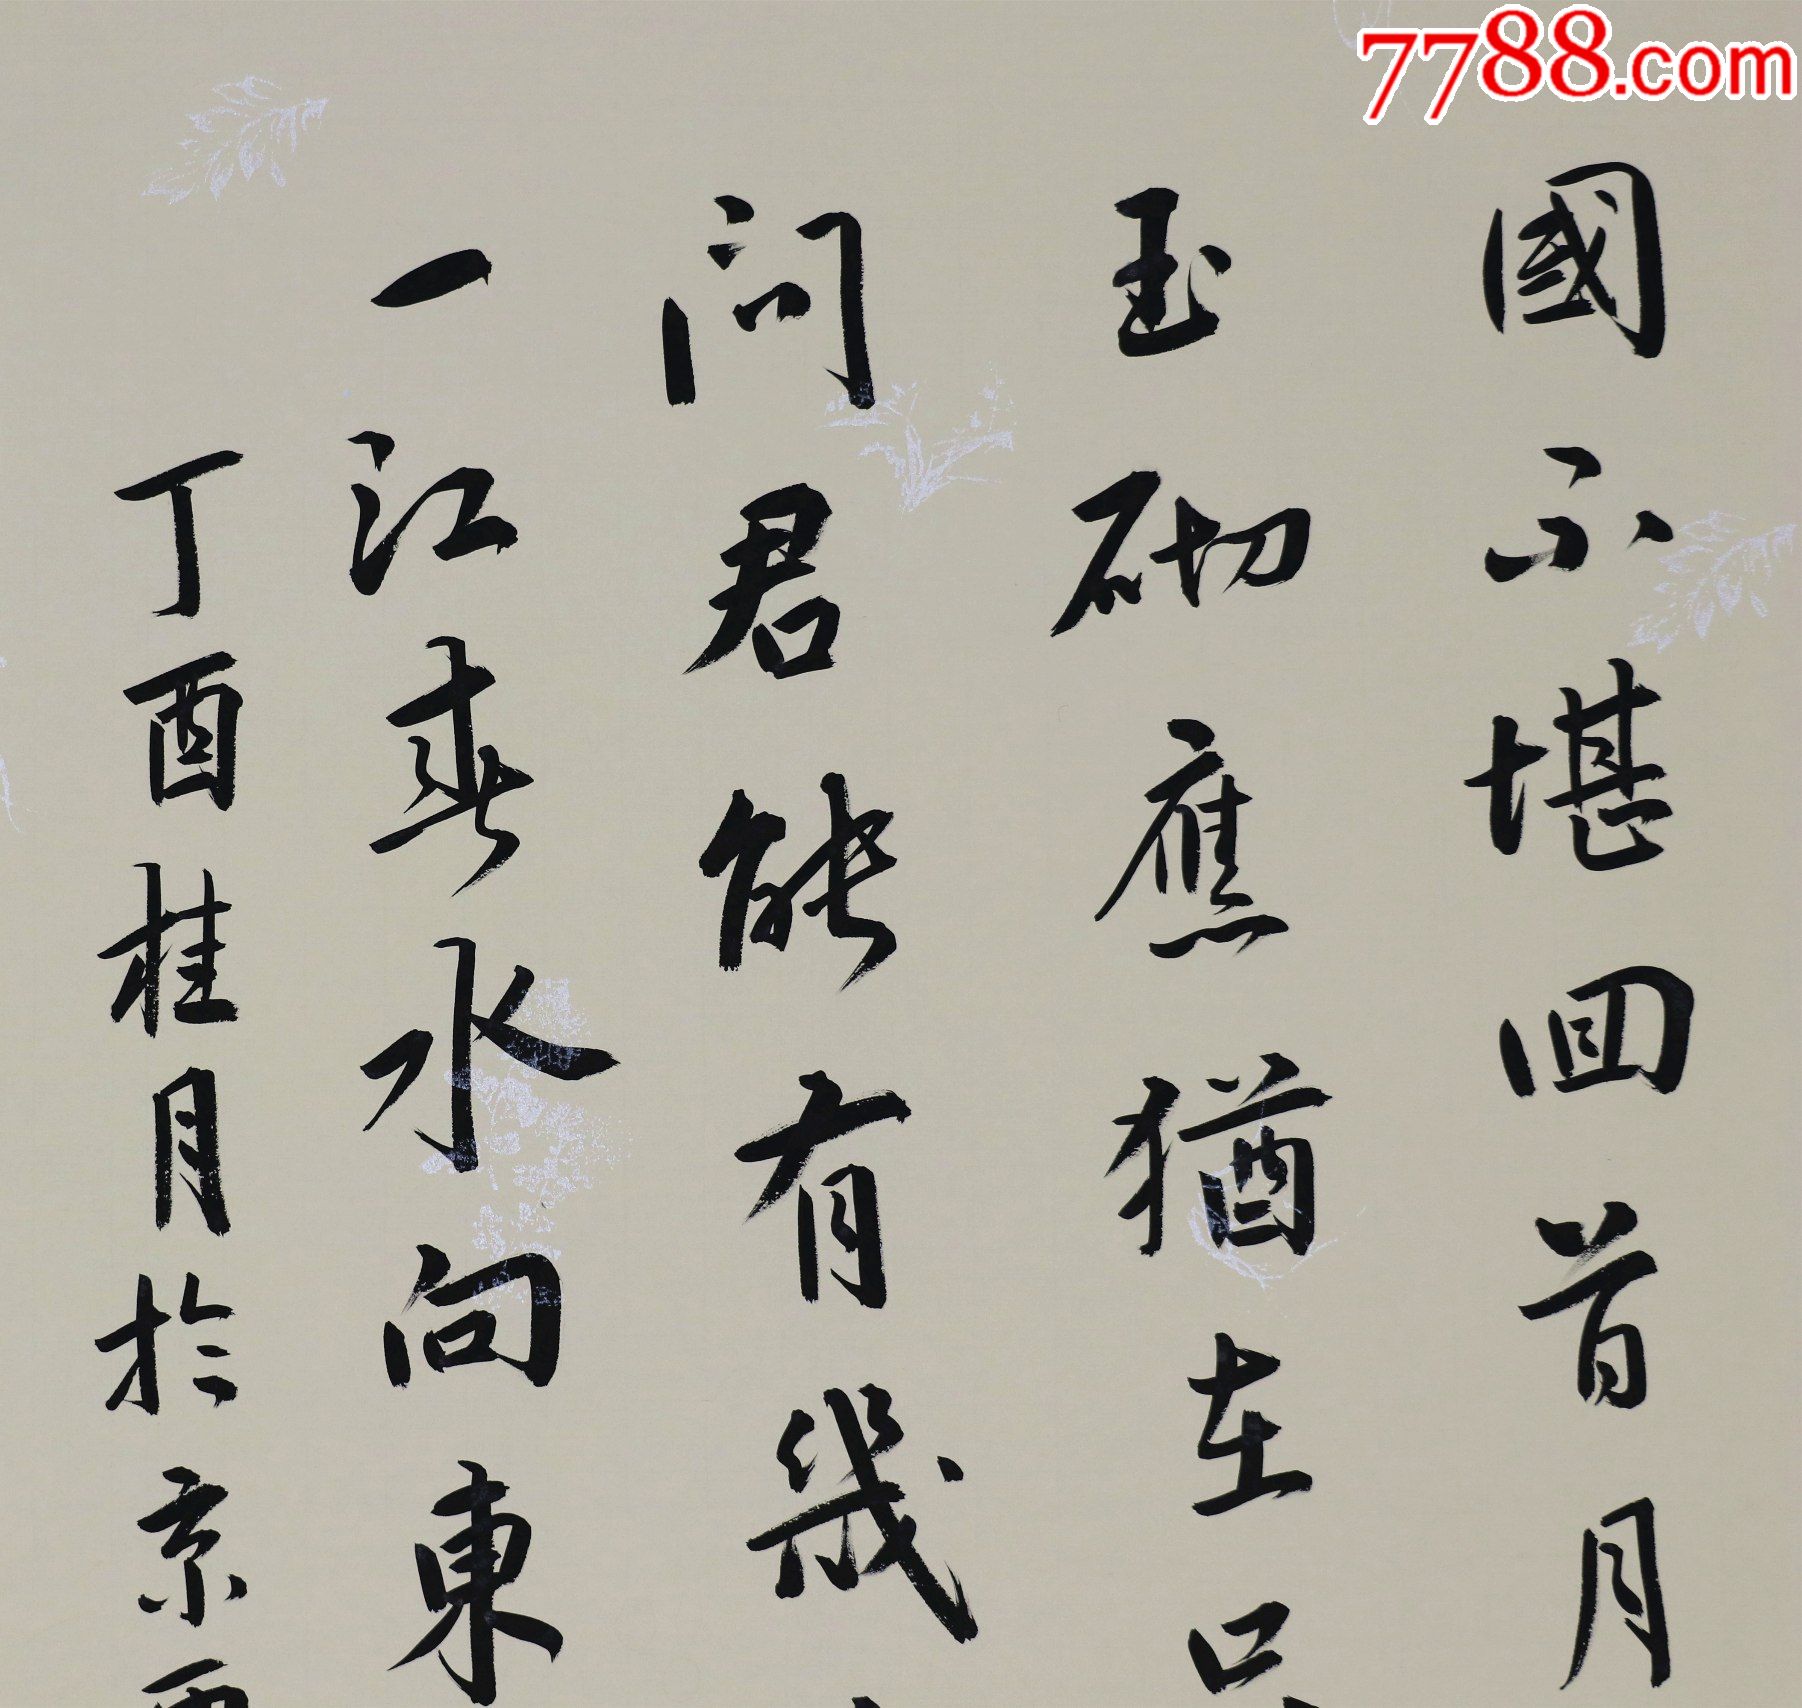 7788.com
國不堪回首月
玉砌應猶在只
问君能有幾
一江春水向東
丁酉桂月於京